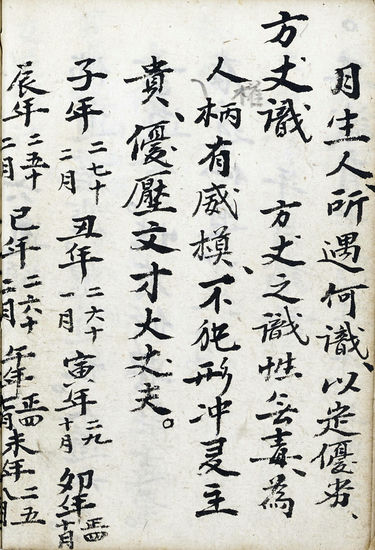 月生人、所遇何識、以定優劣、
方丈識　方丈之識性無毒、為
人權柄有威模、不能形冲是主
貴、優壓文才大丈夫。
子年 二七十二月 丑年 二六十一月 寅年 二九十月 卯年 正四十月
辰年 二五十二月 巳年 二六十二月 午年 正四七月 未年 二五八月